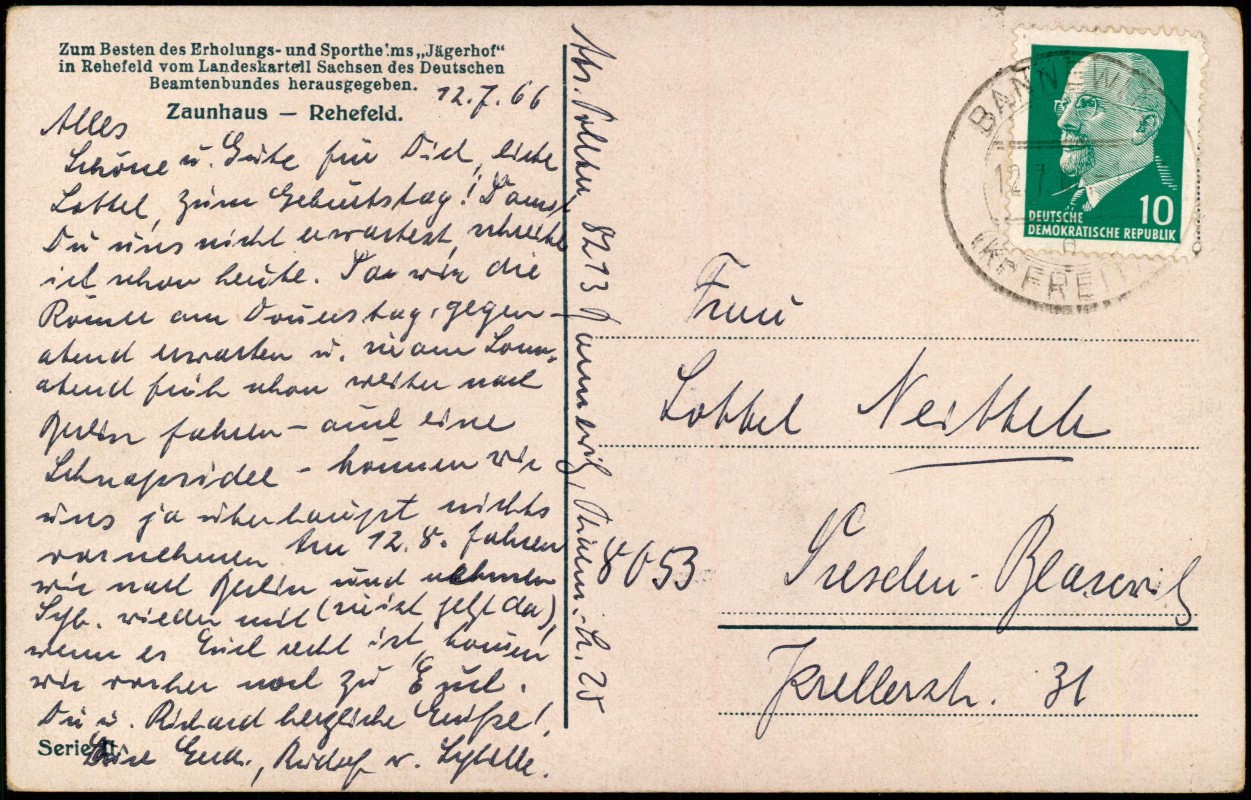 Zum Besten des Erholungs- und Sportheims „Jägerhof“
in Rehefeld vom Landeskartell Sachsen des Deutschen
Beamtenbundes herausgegeben.
Zaunhaus — Rehefeld.
12.7.66
Alles
Schöne u. Gute für Dich, liebe
Lottel, zum Geburtstag! Damit
Du uns nicht erwartest, schreibe
ich schon heute. Da wir die
Römer am Donnerstag, gegen-
abend erwarten u. wir am Sonn-
abend früh schon weiter nach
Berlin fahren – auch eine
Schnapsidee – können wir
uns ja überhaupt nichts
vornehmen. Am 12.8. fahren
wir nach Berlin und nehmen
Syb. wieder mit (sie ist jetzt da),
wenn es Euch recht ist, kommen
wir vorher noch zu Euch.
Du u. Richard herzliche Grüße!
Rudolf u. Sybille.
Serie
Abs. 8213 Bannewitz, 28
BANNEWITZ
12.7.
(KR FREITAL)
DEUTSCHE
DEMOKRATISCHE REPUBLIK
10
Frau
Lottel
8053 Dresden-Blasewitz
Krellerstr. 31